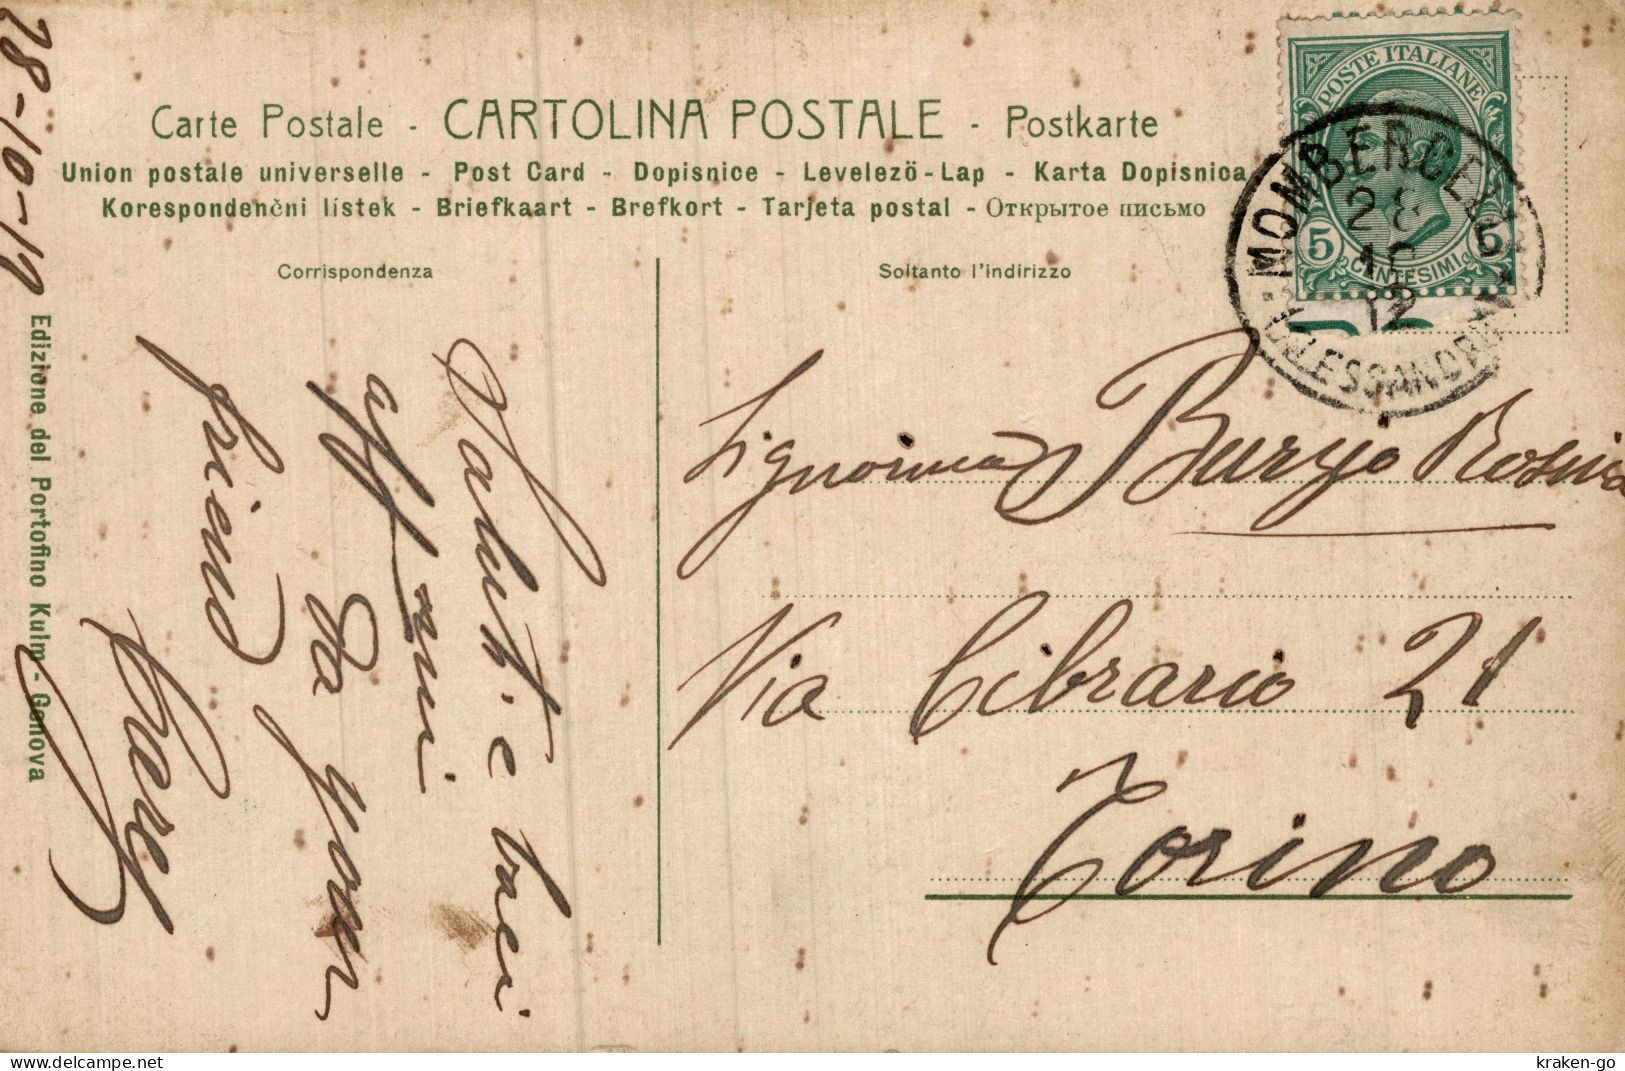 Carte Postale - CARTOLINA POSTALE - Postkarte
Union postale universelle - Post Card - Dopisnice - Levelezö-Lap - Karta Dopisnica
Korespondenční lístek - Briefkaart - Brefkort - Tarjeta postal - Открытое письмо
Corrispondenza
Soltanto l'indirizzo
POSTE ITALIANE
5 5
CENTESIMI
MOMBERCELLI
28
10
12
ALESSANDRIA
28-10-12
Edizione del Portofino Kulm - Genova
Salut. e baci
aff.mi
Da your
friend
Signorina Burzio Rosina
Via Cibrario 21
Torino
kraken-go